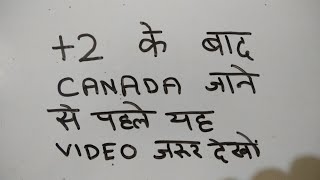 +2 के बाद
CANADA जाने
से पहले यह
VIDEO जरुर देखों